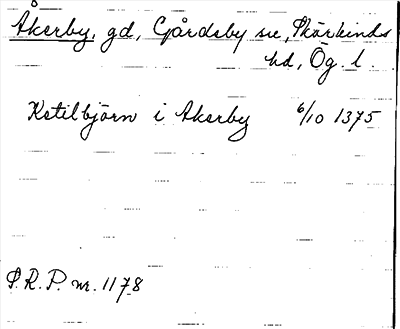 Åkerby, gd, Gårdeby sn, Skärkinds
hd, Ög. l.
Ketilbjörn i Akerby 6/10 1375
S.R.P. nr. 1178